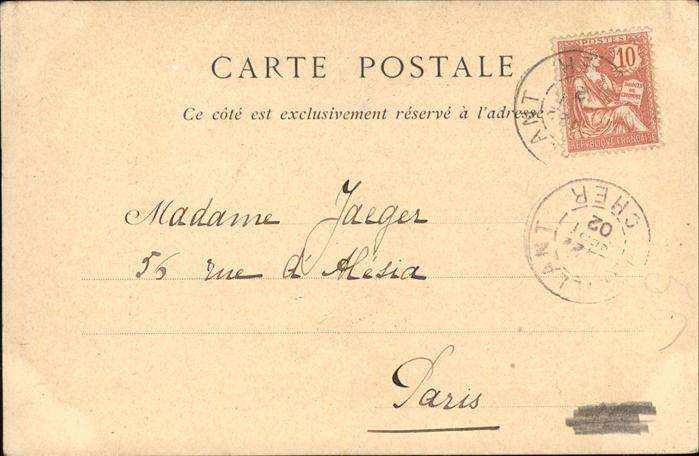 CARTE POSTALE
Ce côté est exclusivement réservé à l'adresse
POSTES
10
DROITS DE L'HOMME
REPVBLIQVE FRANÇAISE
CHER
02
Madame Jaeger
56 rue d'Alésia
Paris